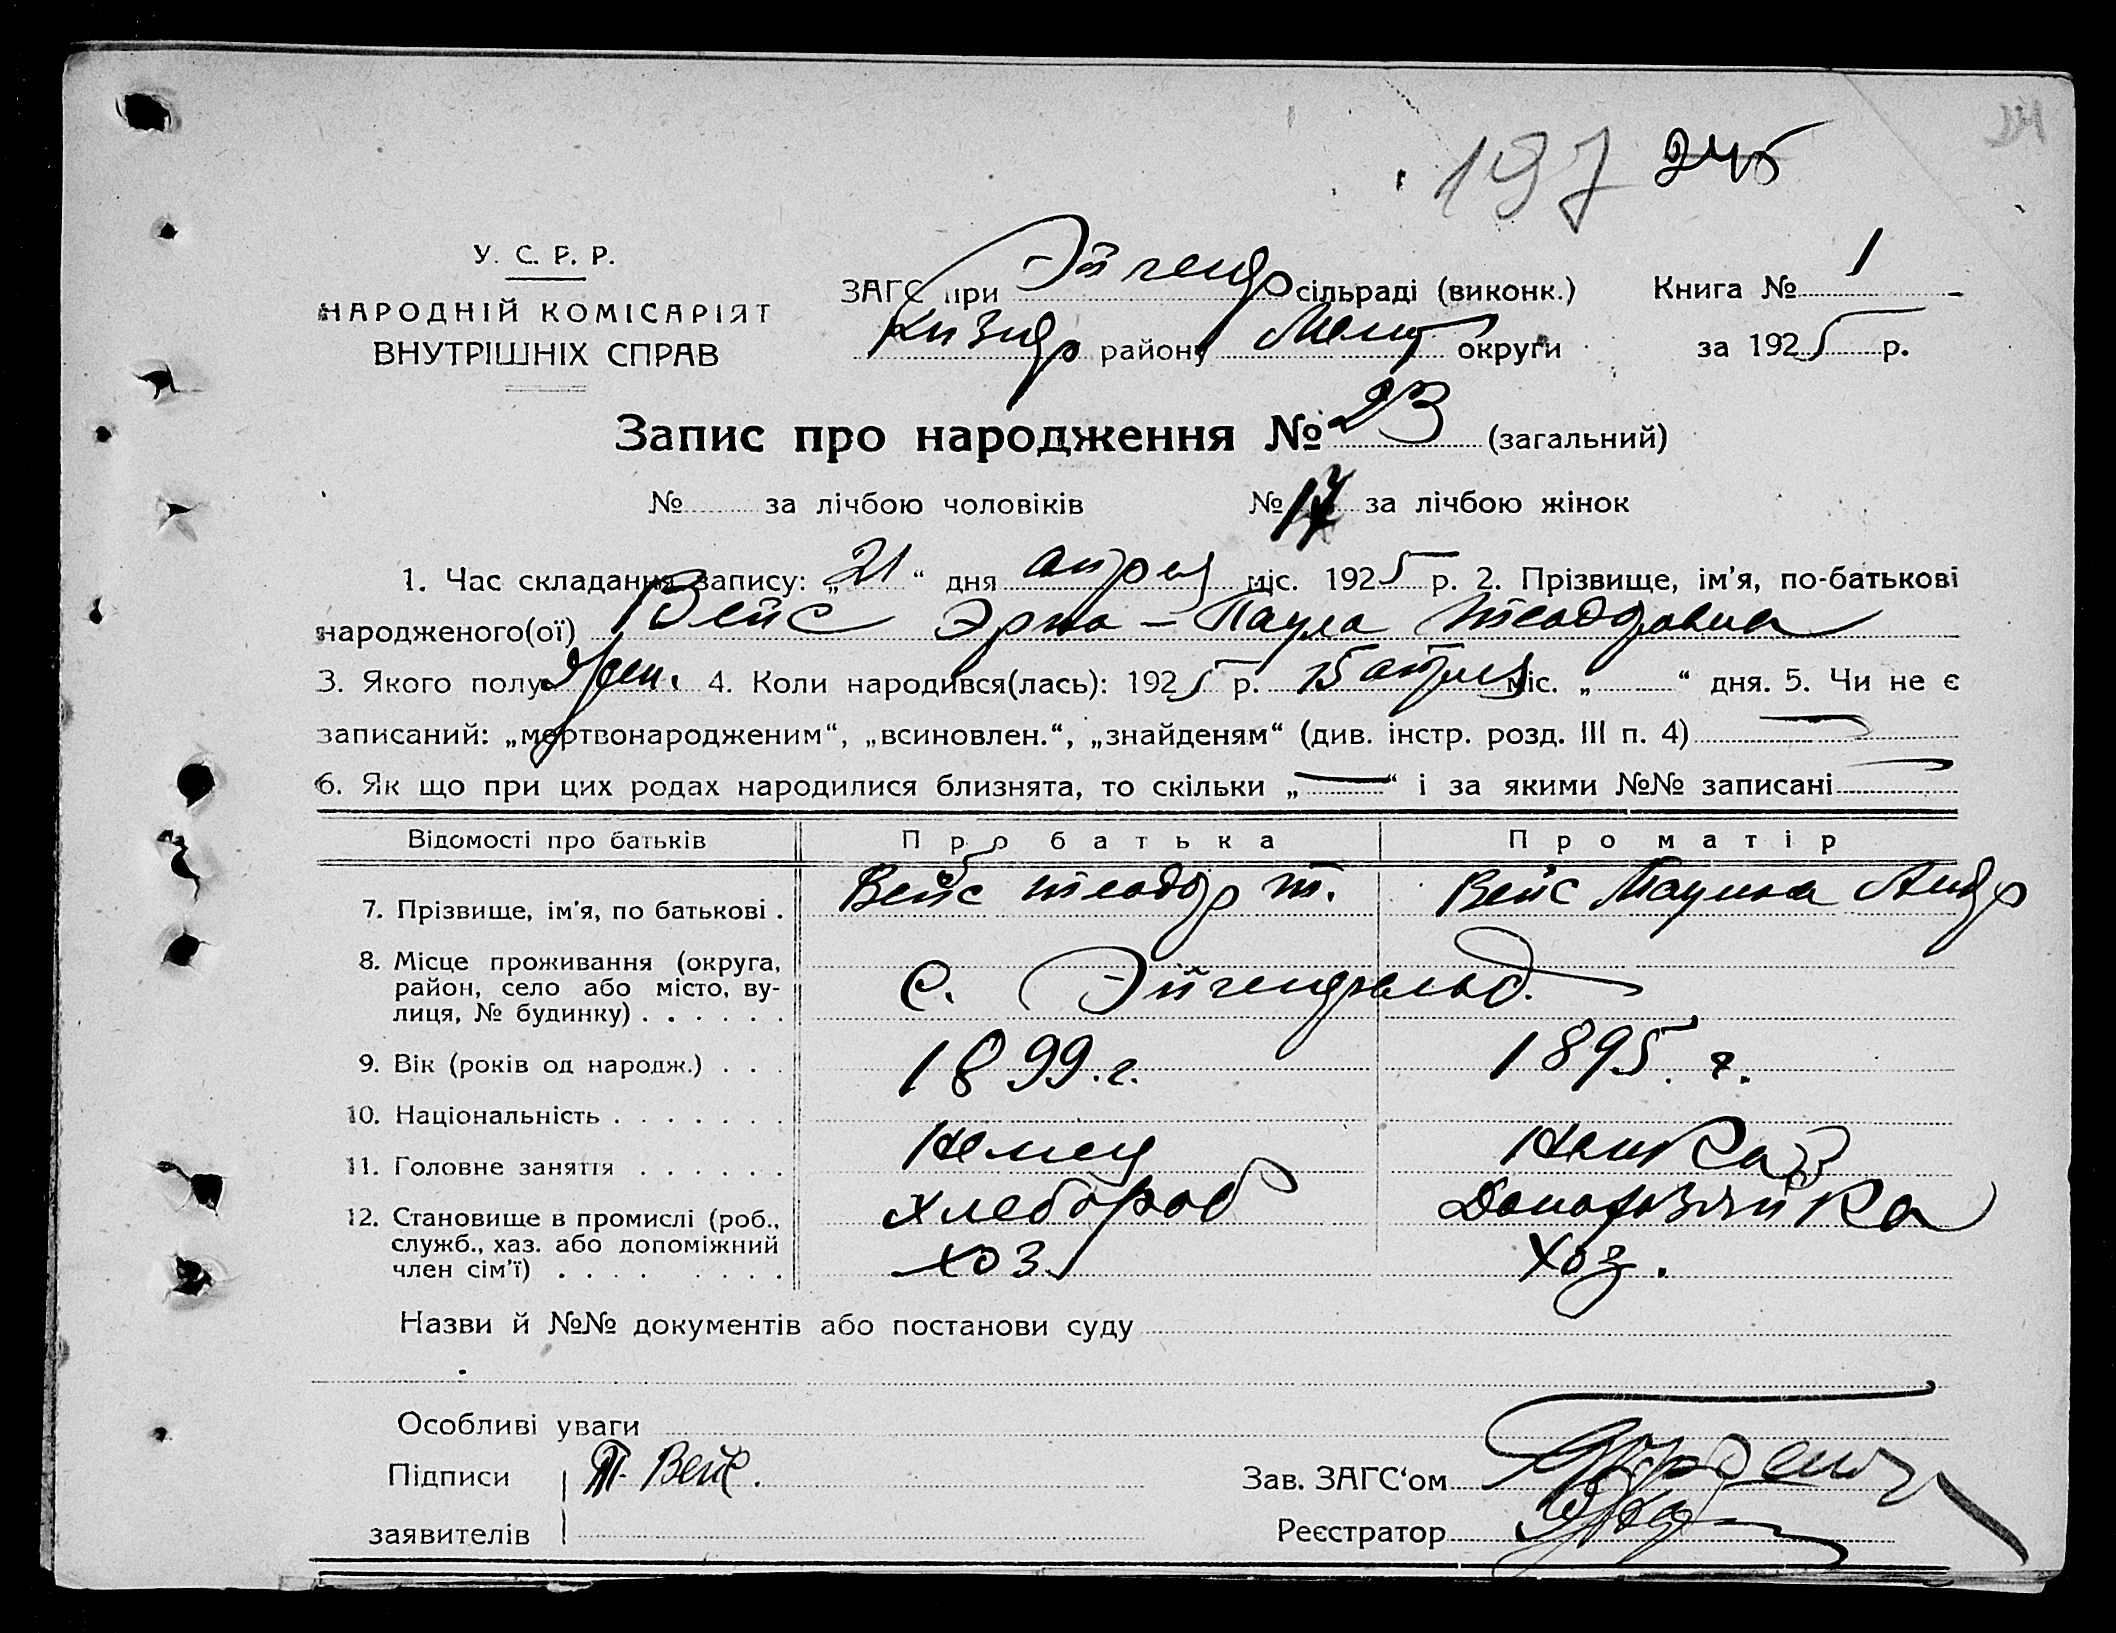 197 245
У. С. Р. Р.
НАРОДНІЙ КОМІСАРІЯТ
ВНУТРІШНІХ СПРАВ
ЗАГС при Эйгенф сільраді (виконк.) Книга № 1
району Мелит округи за 1925 р.
Запис про народження № 23 (загальний)
№ за лічбою чоловіків № 17 за лічбою жінок
1. Час складання запису: „21“ дня апреля міс. 1925 р. 2. Прізвище, ім'я, по-батькові
народженого(ої) Вейс Эрна - Паула Теодоровна
3. Якого полу жен. 4. Коли народився(лась): 1925 р. 15 апреля міс. „ “ дня. 5. Чи не є
записаний: „мертвонародженим“, „всиновлен.“, „знайденям“ (див. інстр. розд. III п. 4)
6. Як що при цих родах народилися близнята, то скільки „—“ і за якими №№ записані —
Відомості про батьків Про батька Про матір
7. Прізвище, ім'я, по батькові . Вейс Теодор Т. Вейс Паулина Андр
8. Місце проживання (округа,
район, село або місто, ву-
лиця, № будинку) . . . . . . С. Эйгенфельд.
9. Вік (років од народж.) . . . 1899.г. 1895.г.
10. Національність . . . . . . . Немец Немка
11. Головне заняття . . . . . . Хлебороб Домохозяйка
12. Становище в промислі (роб.,
служб., хаз. або допоміжний
член сім'ї) . . . . . . . . хоз. Хоз.
Назви й №№ документів або постанови суду
Особливі уваги
Підписи Т. Вейс.
заявителів
Зав. ЗАГС'ом
Реєстратор